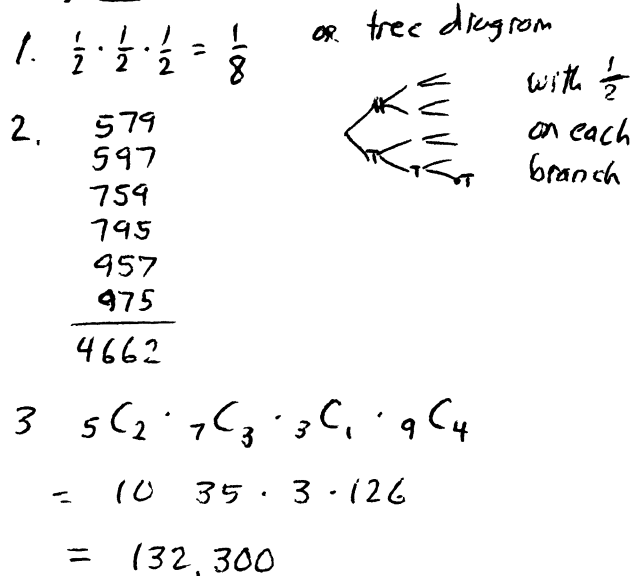 1. 1/2 · 1/2 · 1/2 = 1/8
or tree diagram
H
T
T
T
with 1/2
on each
branch
2.
579
597
759
795
957
975
4662
3 ₅C₂ · ₇C₃ · ₃C₁ · ₉C₄
= 10 35 · 3 · 126
= 132,300